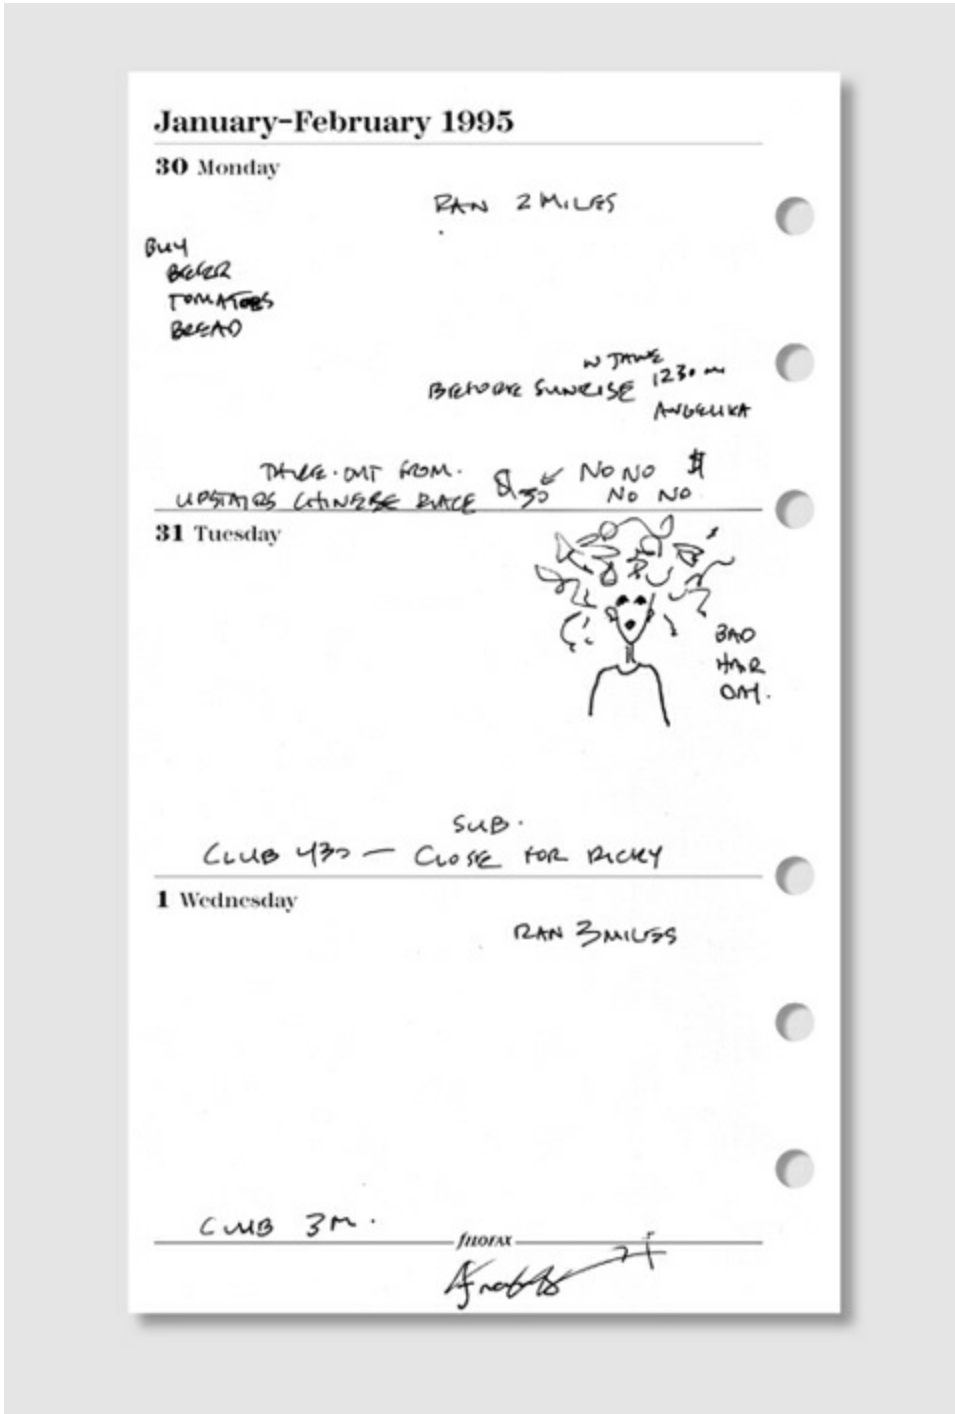 January–February 1995
30 Monday
RAN 2 MILES
BUY
BEER
TOMATOES
BREAD
W JANE
BEFORE SUNRISE 1230
ANGELIKA
TAKE-OUT FROM.
UPSTAIRS CHINESE PLACE
30
NO NO $
NO NO
31 Tuesday
BAD
HAIR
DAY.
SUB.
CLUB 430 — CLOSE FOR RICKY
1 Wednesday
RAN 3 MILES
CLUB 3
filofax